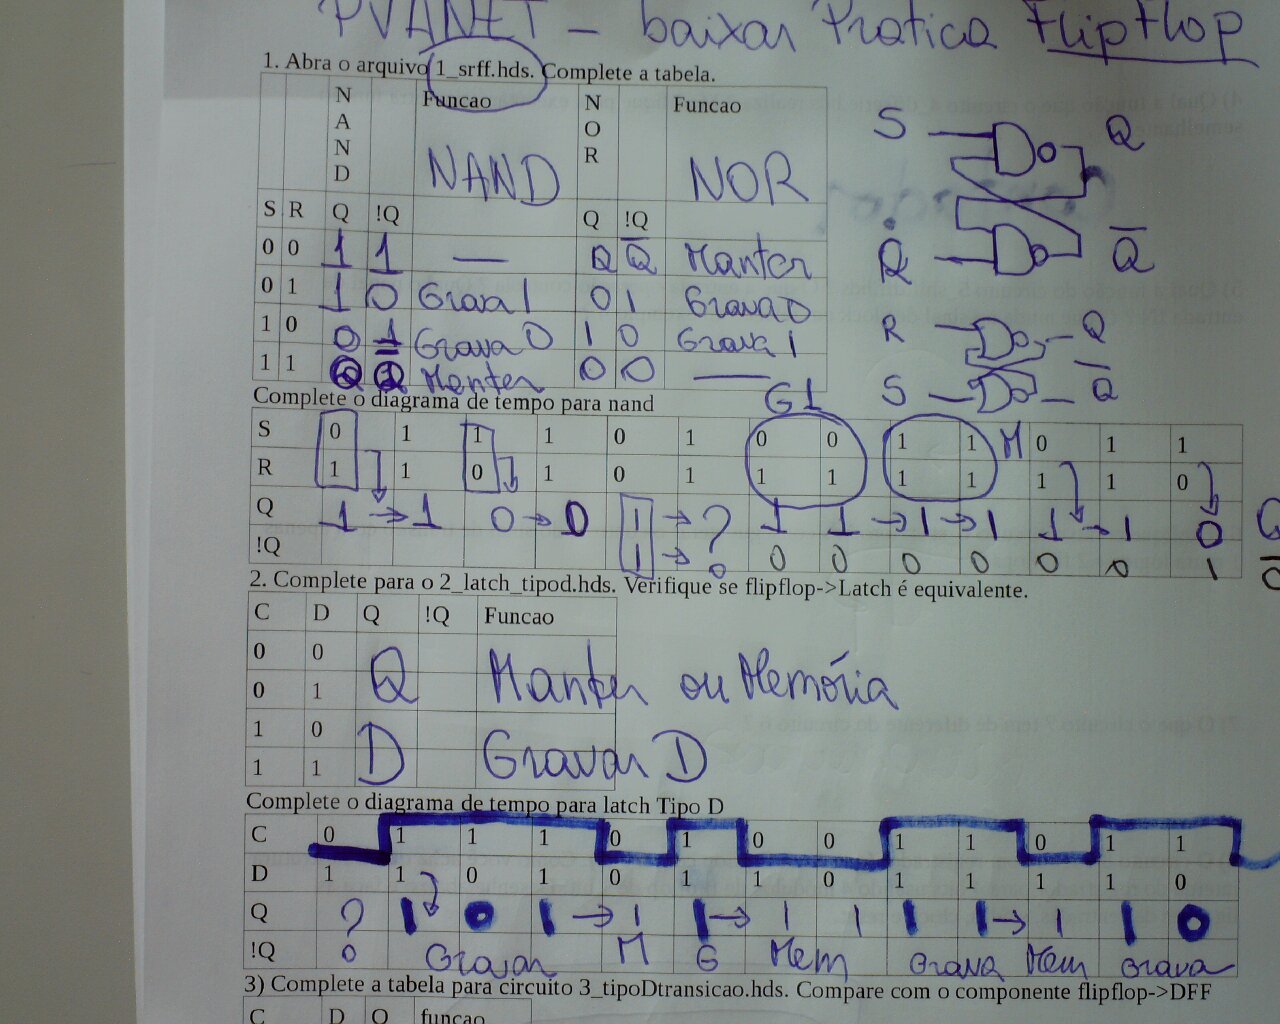 PVANET - baixar Pratica FlipFlop
1. Abra o arquivo 1_srff.hds. Complete a tabela.
NAND Funcao NOR Funcao
NAND NOR
S R Q !Q Q !Q
0 0 1 1 — Q Q̅ Manter
0 1 1 0 Grava 1 0 1 Grava 0
1 0 0 1 Grava 0 1 0 Grava 1
1 1 Q Q̅ Manter 0 0 —
S Q
R Q̅
R Q
S Q̅
Complete o diagrama de tempo para nand
G1
S 0 1 1 1 0 1 0 0 1 1 M 0 1 1
R 1 1 0 1 0 1 1 1 1 1 1 1 0
Q 1 → 1 0 → 0 1 → ? 1 1 → 1 → 1 1 → 1 0 Q
!Q 1 → ? 0 0 0 0 0 0 1 Q̅
2. Complete para o 2_latch_tipod.hds. Verifique se flipflop->Latch é equivalente.
C D Q !Q Funcao
0 0
0 1 Q Manter ou Memória
1 0
1 1 D Gravar D
Complete o diagrama de tempo para latch Tipo D
C 0 1 1 1 0 1 0 0 1 1 0 1 1
D 1 1 0 1 0 1 1 0 1 1 1 1 0
Q ? 1 0 1 → 1 1 → 1 1 1 1 → 1 1 0
!Q Gravar M G Mem Grava Mem Grava
3) Complete a tabela para circuito 3_tipoDtransicao.hds. Compare com o componente flipflop->DFF
C D Q funcao